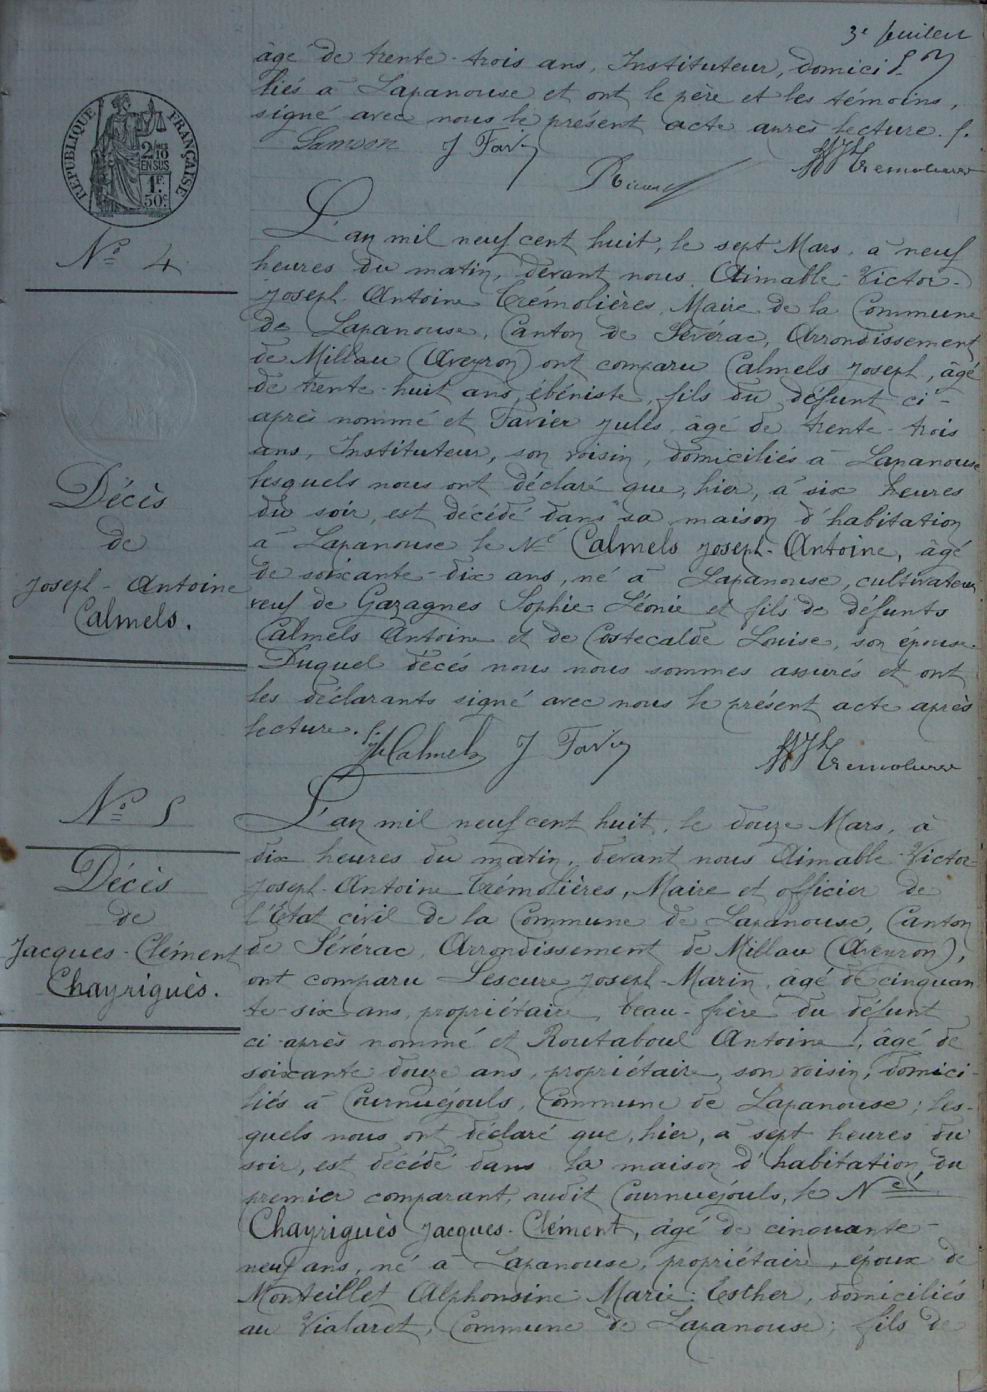 3e feuillet
âgé de trente-trois ans, Instituteur, domici-
liés à Lapanouse et ont le père et les témoins,
signé avec nous le présent acte après lecture. /.
Samson J Favier
Tremolieres
RÉPUBLIQUE FRANÇAISE
2/10 EN SUS
1F. 50c.
No 4
L'an mil neuf cent huit, le sept Mars, à neuf
heures du matin, devant nous Aimable-Victor-
Joseph-Antoine Trémolières, Maire de la Commune
de Lapanouse, Canton de Sévérac, Arrondissement
de Millau (Aveyron) ont comparu Calmels Joseph, âgé
de trente-huit ans, ébéniste, fils du défunt ci-
après nommé et Favier Jules, âgé de trente-trois
ans, Instituteur, son voisin, domiciliés à Lapanouse
lesquels nous ont déclaré que, hier, à six heures
du soir, est décédé dans sa maison d'habitation
à Lapanouse le Né Calmels Joseph-Antoine, âgé
de soixante-dix ans, né à Lapanouse, cultivateur,
veuf de Gazagnes Sophie-Léonie et fils de défunts
Calmels Antoine et de Costecalde Louise, son épouse.
Duquel décés nous nous sommes assurés et ont
les déclarants signé avec nous le présent acte après
lecture. /.
Décès
de
Joseph-Antoine
Calmels.
J Calmels J Favier Tremolieres
No 5
Décès
de
Jacques-Clément
Chayriguès.
L'an mil neuf cent huit, le douze Mars, à
dix heures du matin, devant nous Aimable-Victor-
Joseph-Antoine Trémolières, Maire et officier de
l'Etat civil de la Commune de Lapanouse, Canton
de Sévérac, Arrondissement de Millau (Aveyron),
ont comparu Lescure Joseph-Marin, âgé de cinquan
te-six ans, propriétaire, beau-frère du défunt
ci-après nommé et Routaboul Antoine, âgé de
soixante douze ans, propriétaire, son voisin, domici-
liés à Cournuéjouls, Commune de Lapanouse; les-
quels nous ont déclaré que, hier, à sept heures du
soir, est décédé dans la maison d'habitation du
premier comparant, audit Cournuéjouls, le Né
Chayriguès Jacques-Clément, âgé de cinquante-
neuf ans, né à Lapanouse, propriétaire, époux de
Monteillet Alphonsine-Marie-Esther, domiciliés
au Vialaret, Commune de Lapanouse; fils de